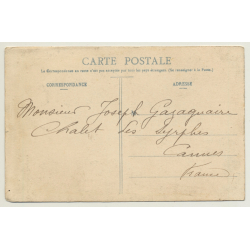 CARTE POSTALE
CORRESPONDANCE
ADRESSE
Monsieur Joseph Gazagnaire
Chalet des Syrphes
Cannes
France